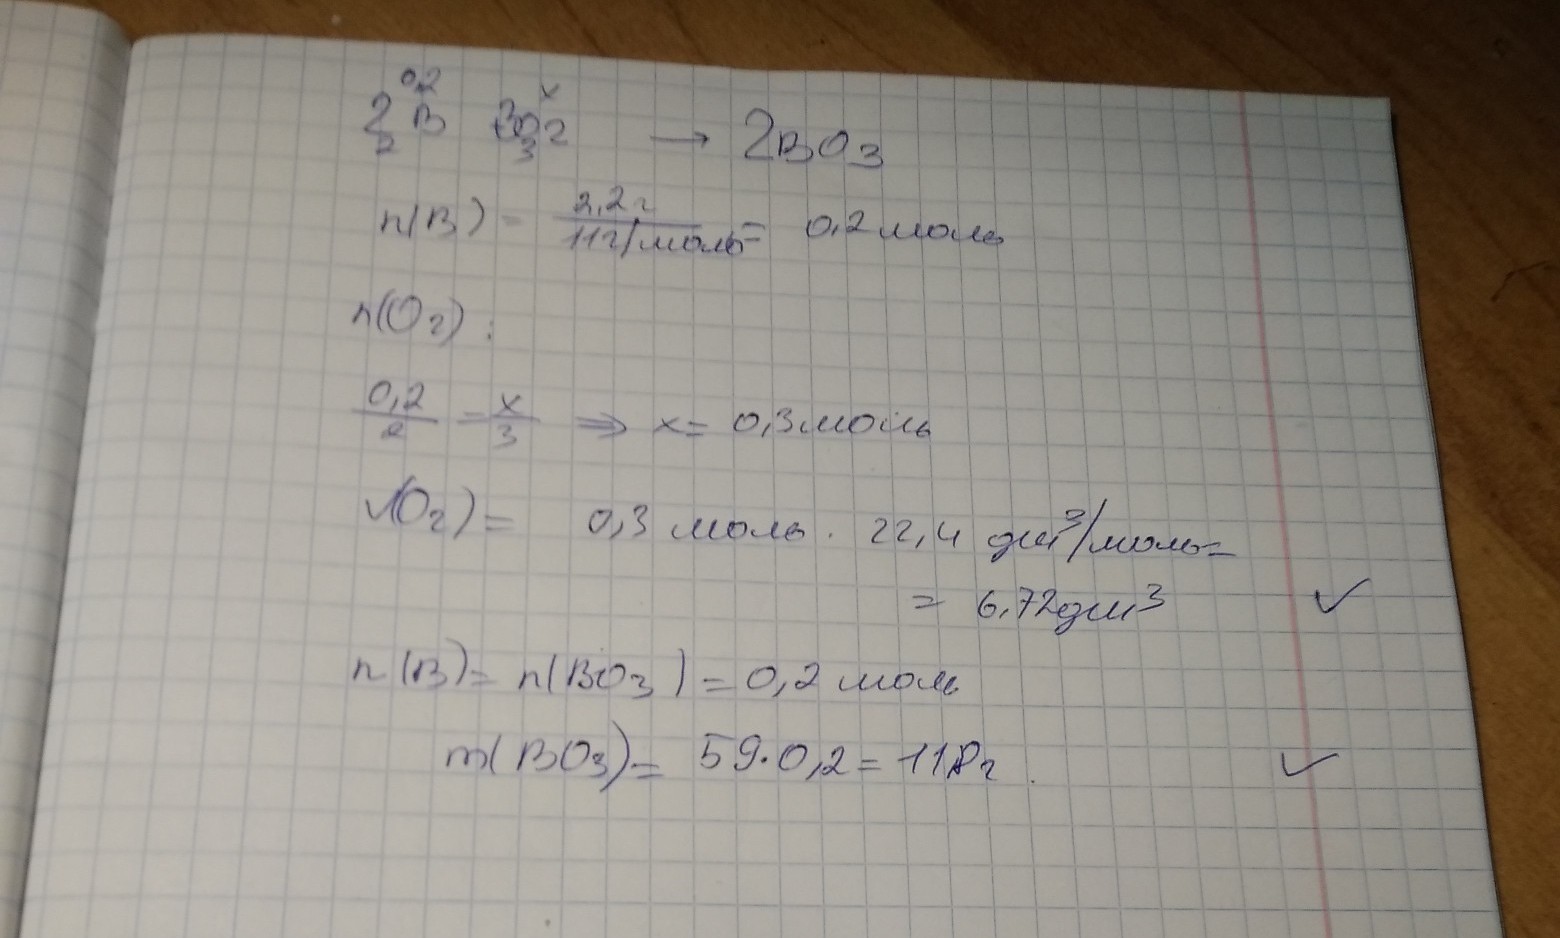 0,2 x
2 B 3O2 → 2BO3
2 3
n(B) = 2,2г / 11г/моль = 0,2 моль
n(O2) :
0,2/2 = x/3 ⇒ x = 0,3 моль
V(O2) = 0,3 моль · 22,4 дм³/моль =
= 6,72 дм³ ✓
n(B) = n(BO3) = 0,2 моль
m(BO3) = 59·0,2 = 118г. ✓